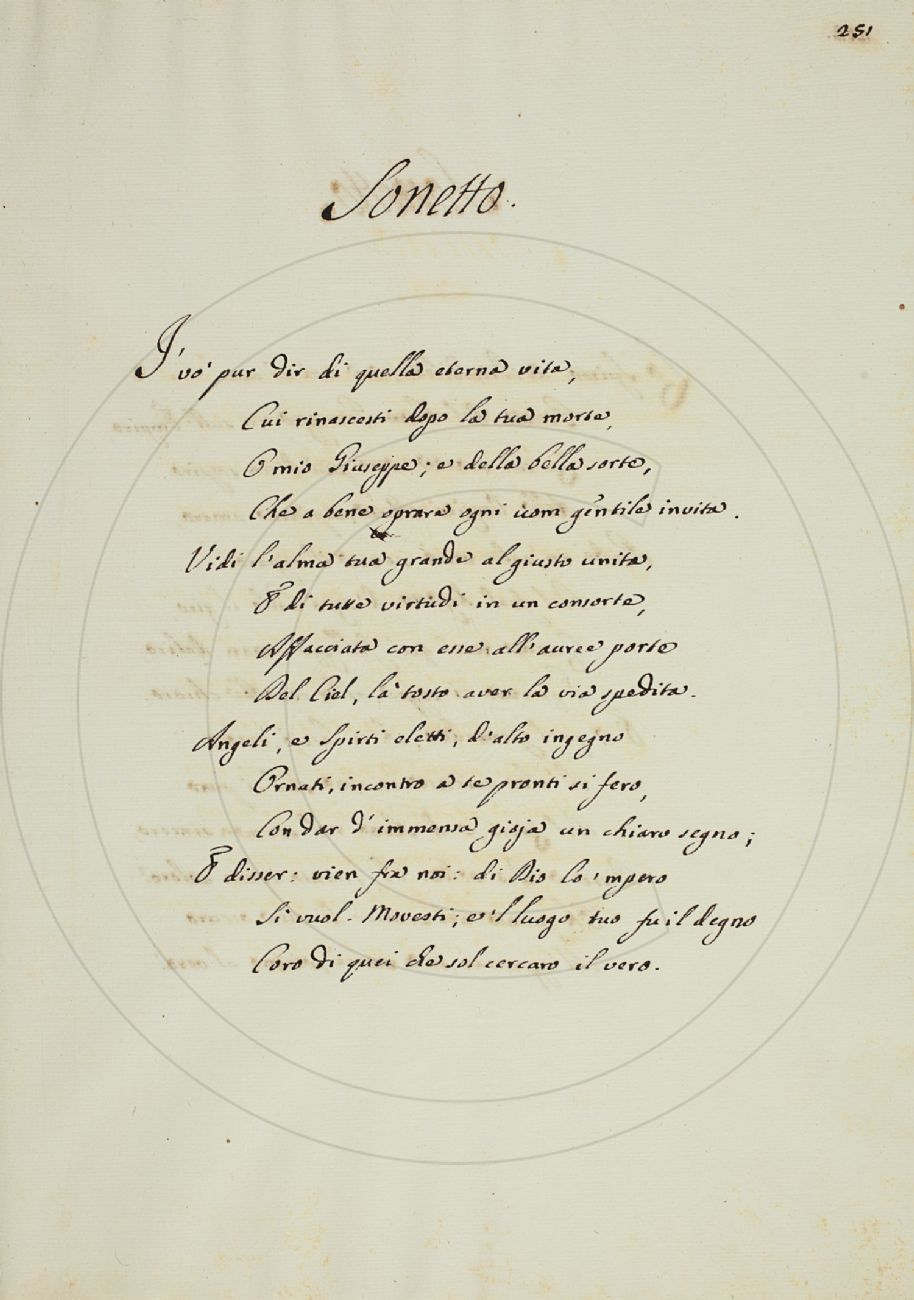 251
Sonetto.
I' vo' pur dir di quella eterna vita,
Cui rinascesti dopo la tua morte,
O mio Giuseppe; e della bella sorte,
Che a bene oprare ogni uom gentile invita.
Vidi l'alma tua grande al giusto unita,
E di tutte virtudi in un consorte,
Affacciata con esse all'auree porte
Del Ciel, là tosto aver la via spedita.
Angeli, e Spirti eletti, d'alto ingegno
Ornati, incontro a te pronti si fero,
Con dar d'immensa gioja un chiaro segno;
E disser: vien fra noi: di Dio lo 'mpero
Si vuol. Movesti; e 'l luogo tuo fu il degno
Coro di quei che sol cercaro il vero.